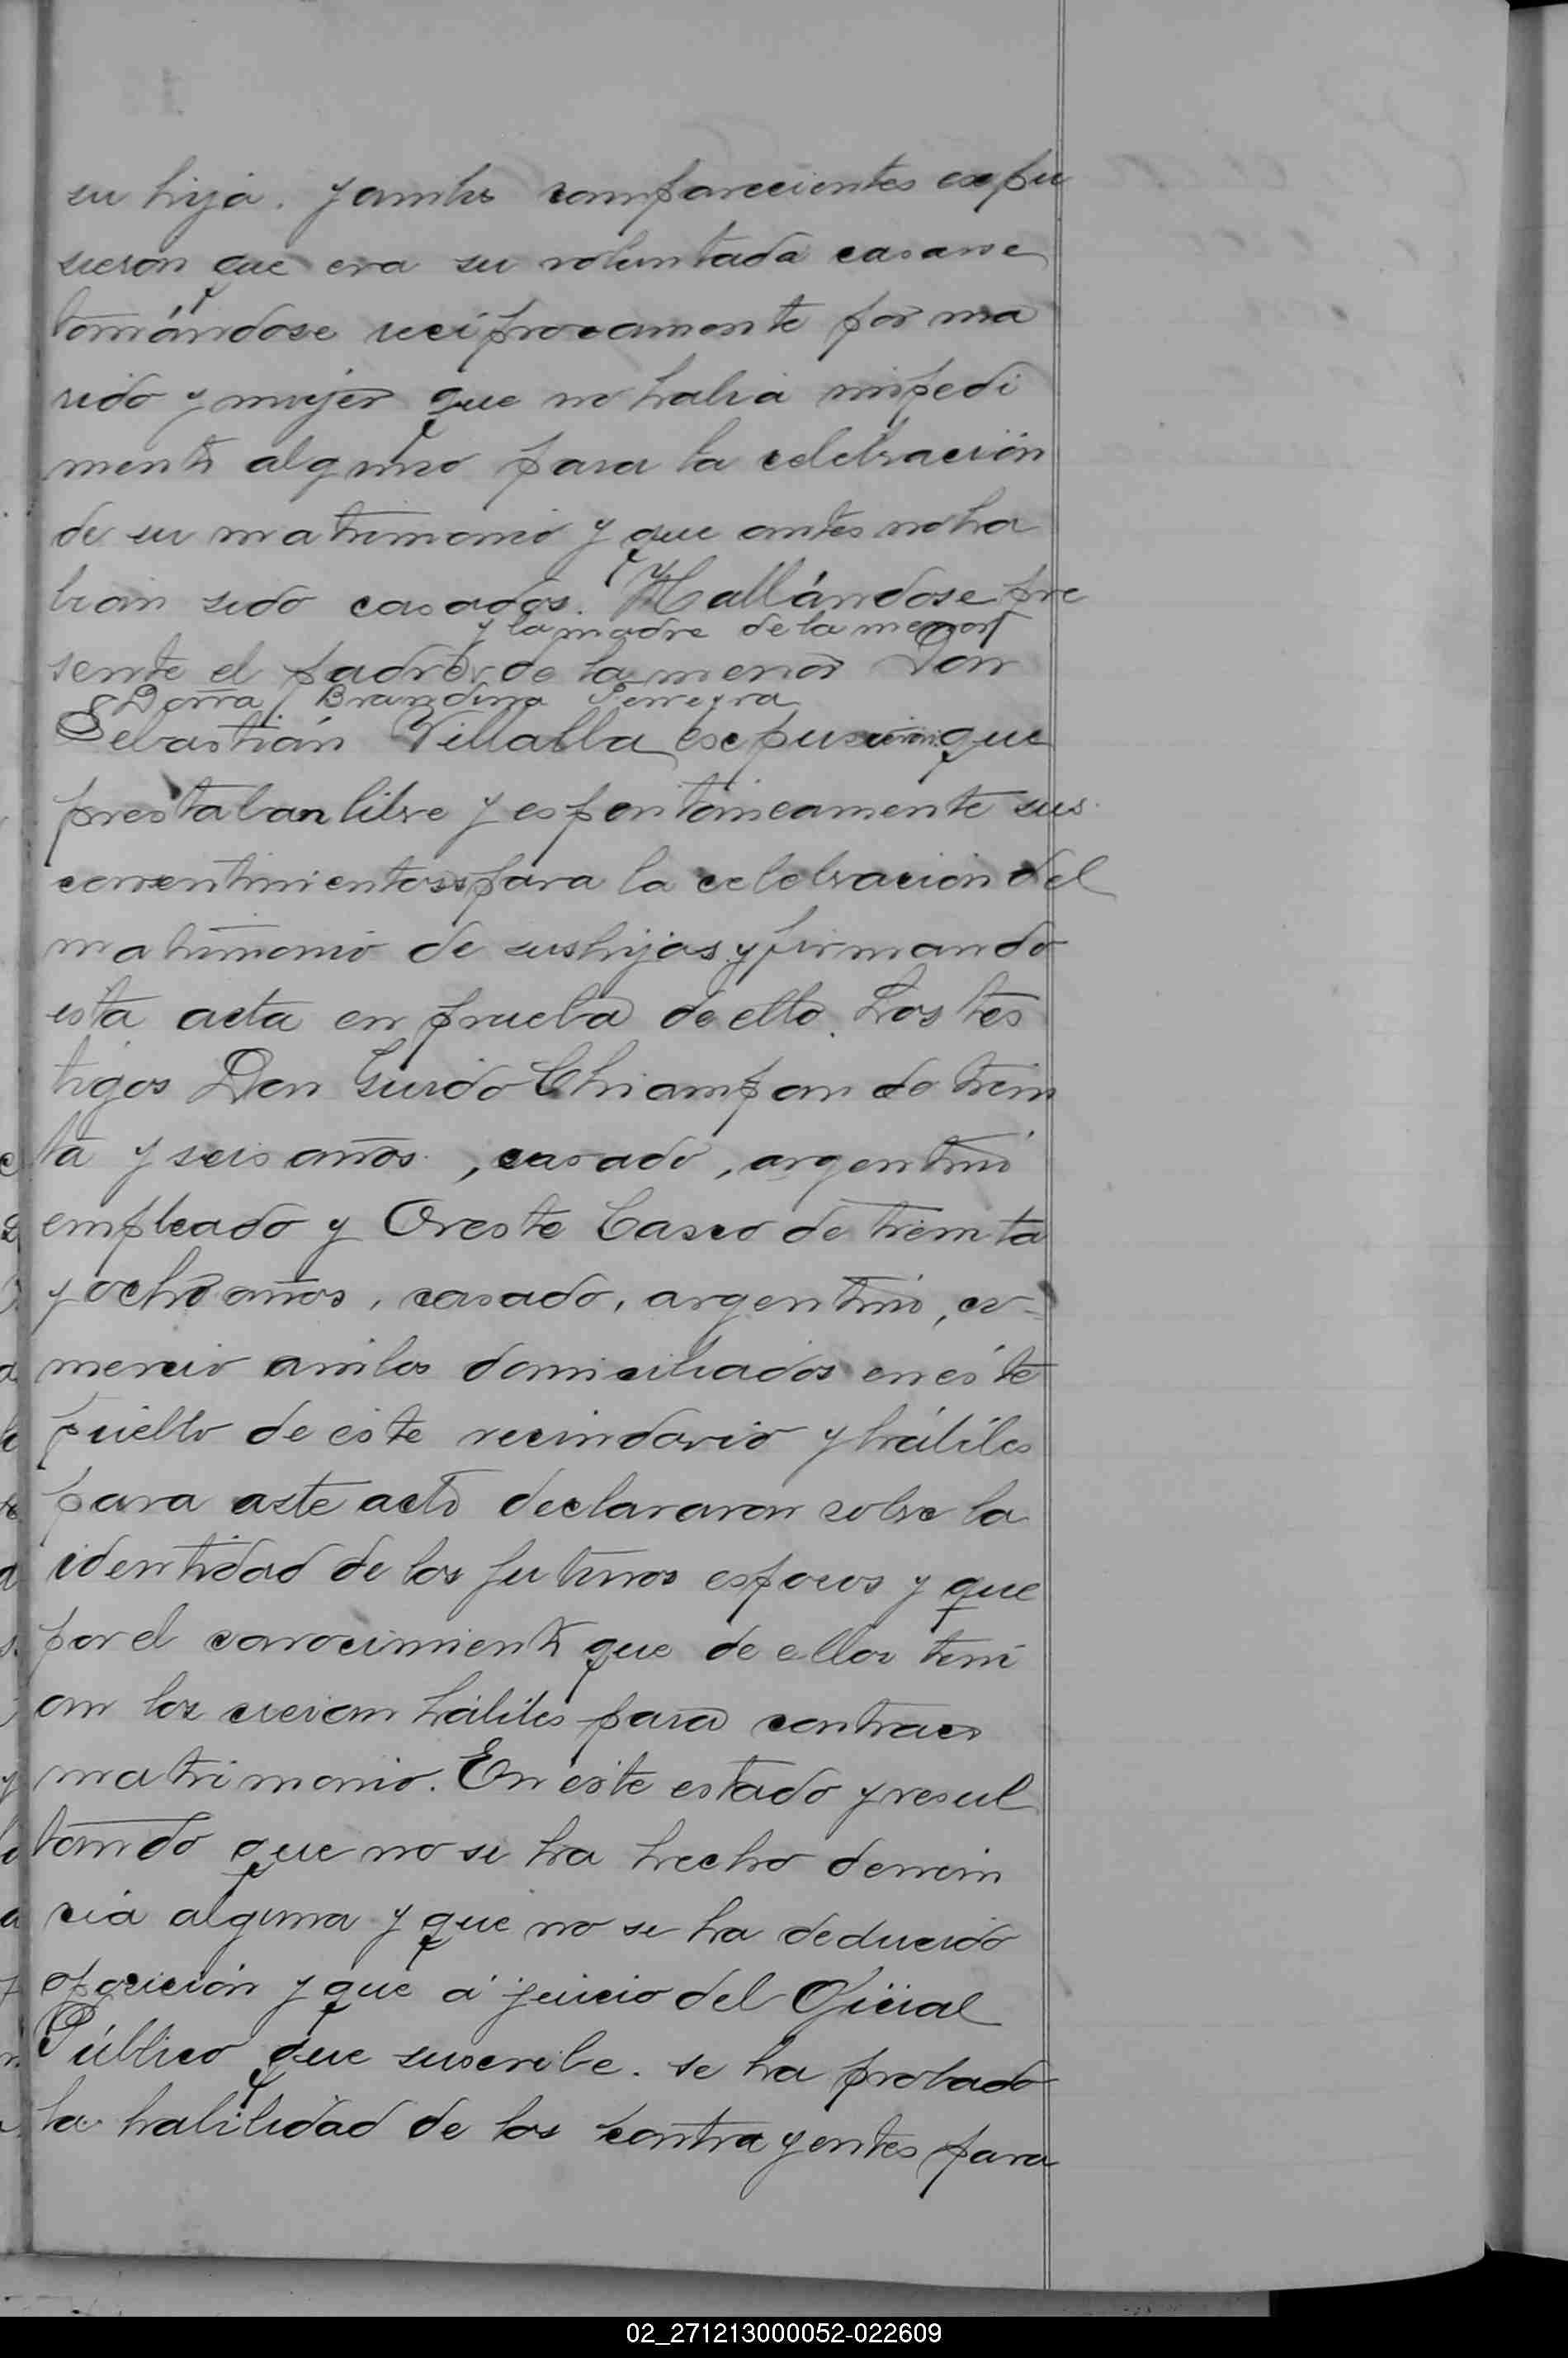 su hija. y ambos comparecientes expu
sieron que era su voluntada casarse
tomándose reciprocamente por ma
rido y mujer que no habia impedi
mento alguno para la celebración
de su matrimonio y que antes no ha
bian sido casados. Y Hallándose pre
y la madre de la menor
sente el padre de la menor Don
Doña Brandina Ferreyra
Sebastián Villalba expusieron que
prestaban libre y espontáneamente sus
consentimientos para la celebración del
matrimonio de sus hijas y firmando
esta acta en prueba de ello. Los tes
tigos Don Guido Chiampan de trein
ta y seis años, casado, argentino
empleado y Oreste Casco de treinta
y ocho años, casado, argentino, co-
mercio ambos domiciliados en éste
pueblo de éste vecindario y hábiles
para aste acto declararon sobre la
identidad de los futuros esposos y que
por el conocimiento que de ellos teni
an los creian hábiles para contraer
matrimonio. En éste estado y resul
tando que no se ha hecho denun
cia alguna y que no se ha deducido
oposición y que á juicio del Oficial
Público que suscribe. se ha probado
la habilidad de los contrayentes para
02_271213000052-022609